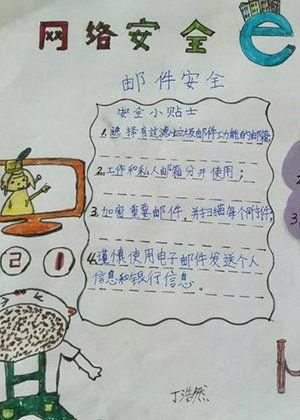 网络安全
邮件安全
安全小贴士
1.选择有过滤垃圾邮件功能的邮箱
2.工作和私人邮箱分开使用；
3.加密重要邮件，并扫描每个附件
4.谨慎使用电子邮件发送个人
信息和银行信息。
21
丁浩然